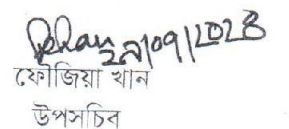 ২৭/09/2023
ফৌজিয়া খান
উপসচিব